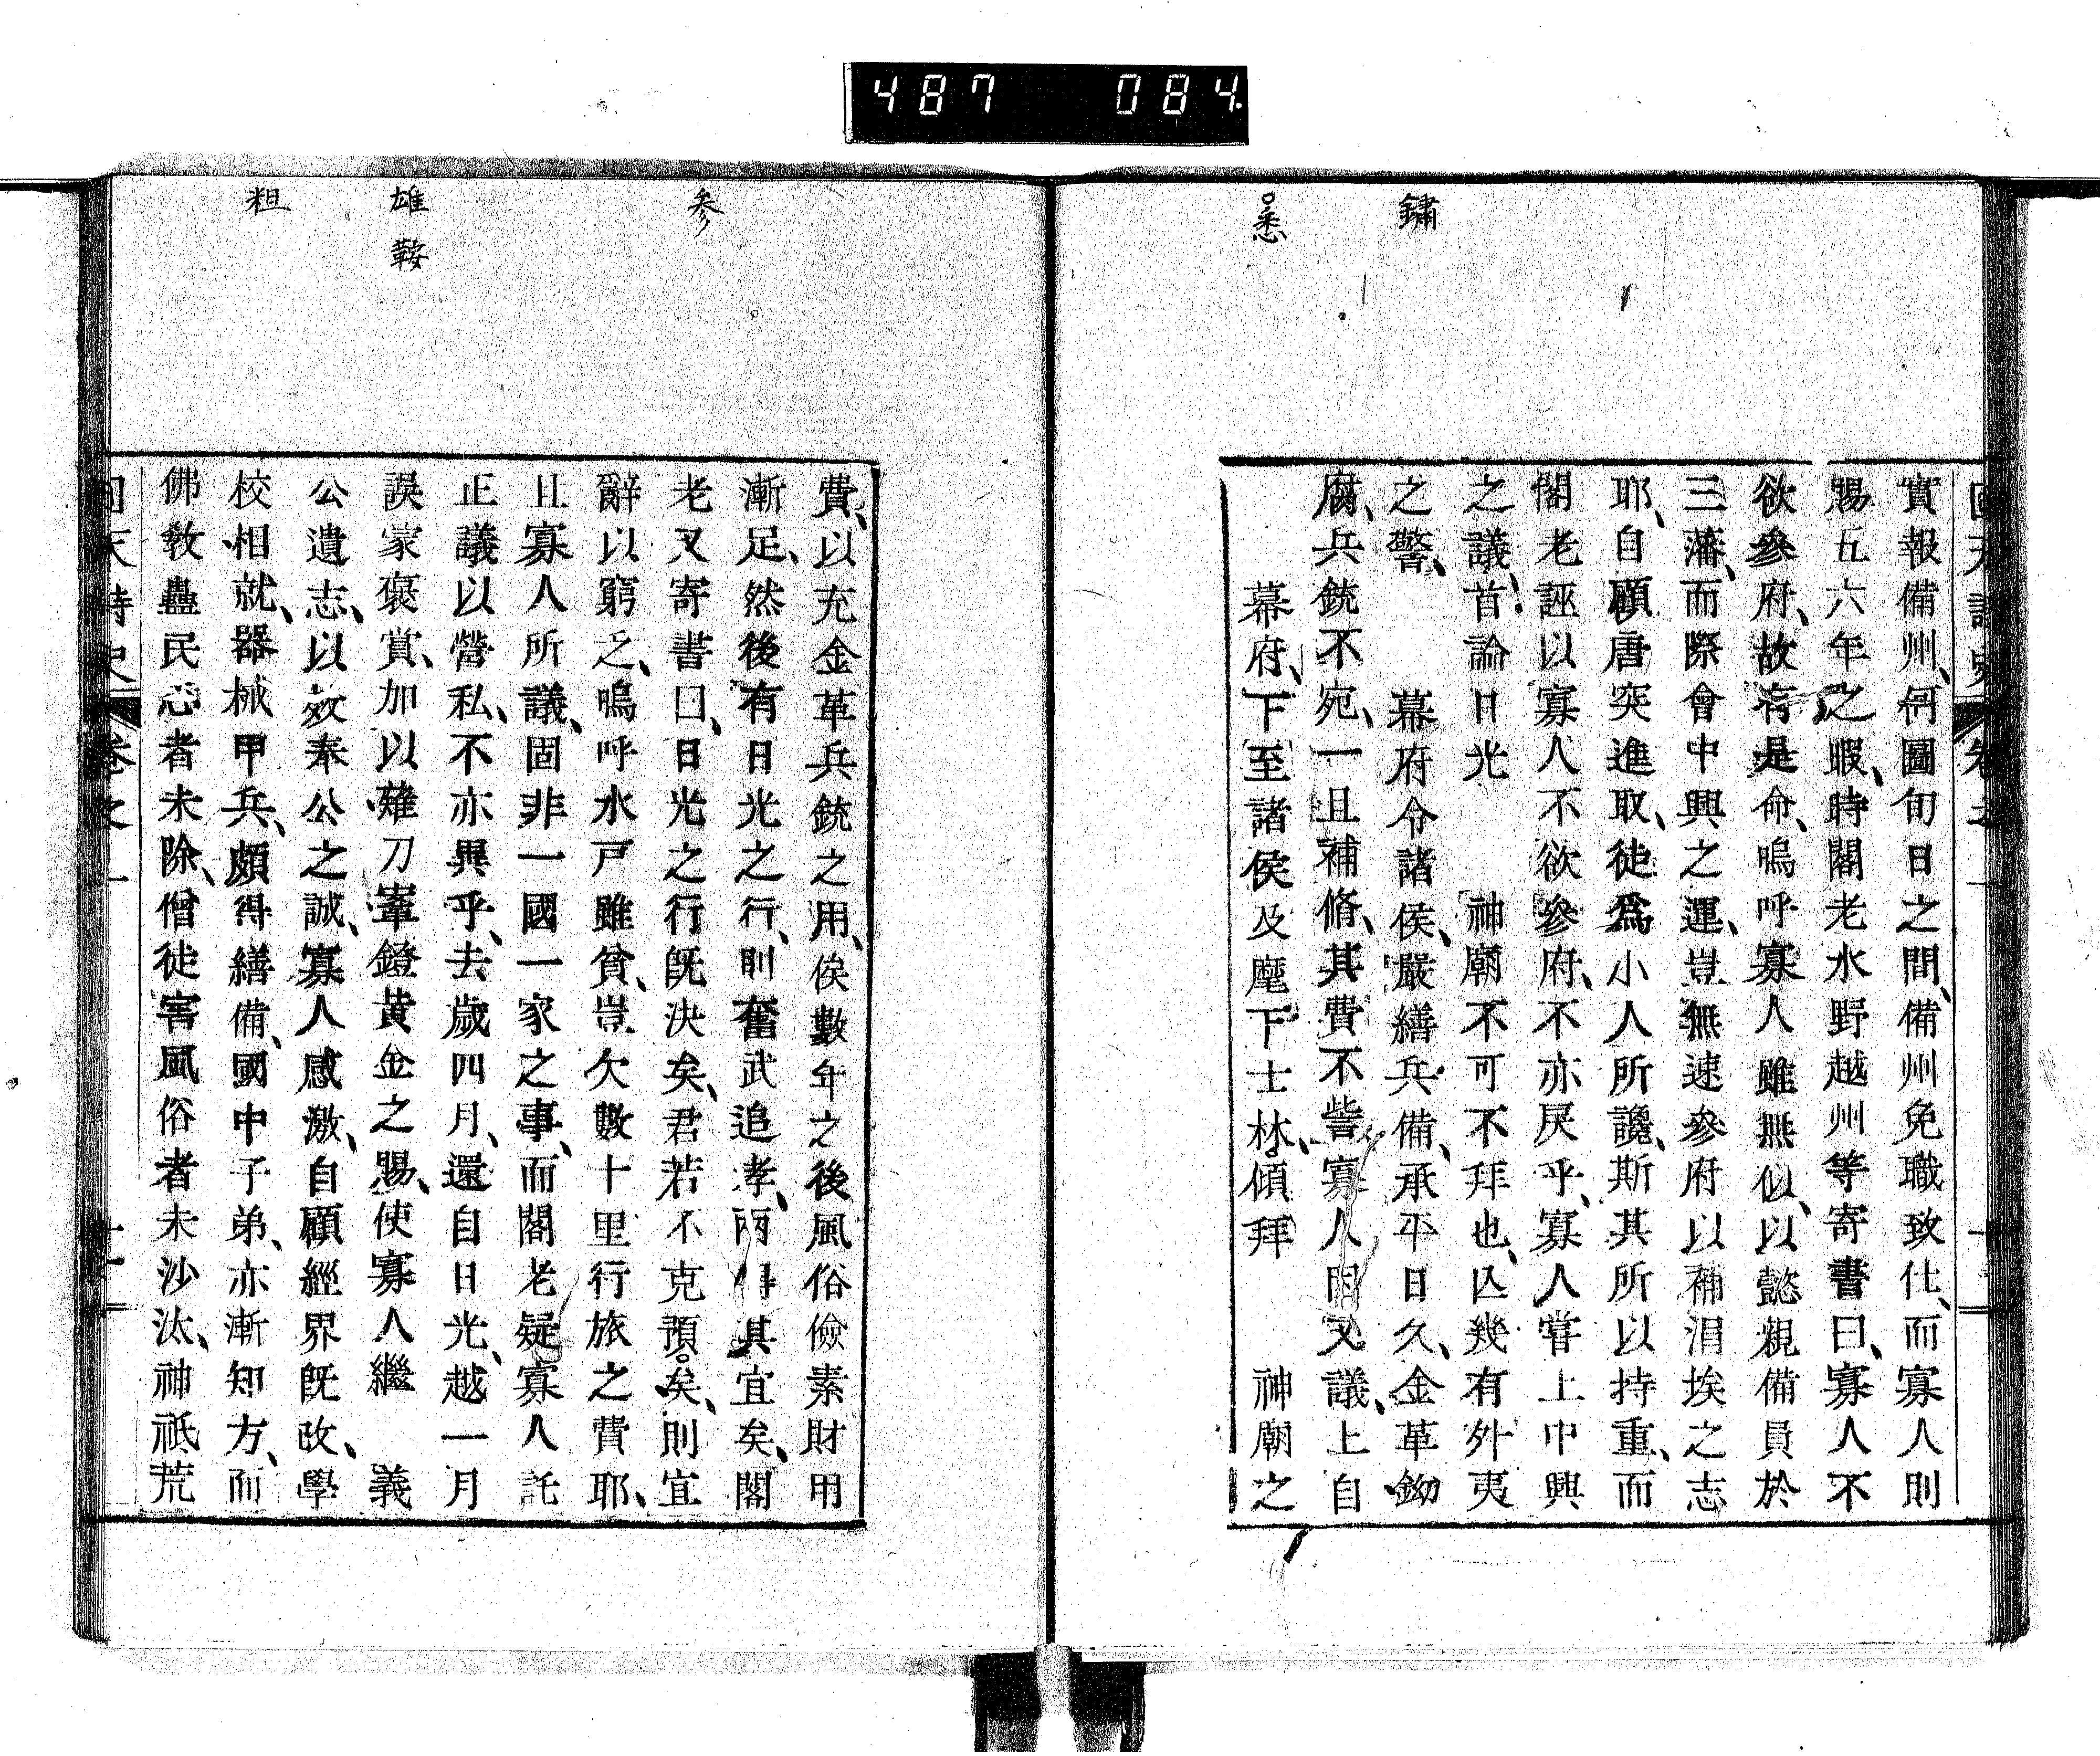 487 084
鏽
悉
實報備州、何圖旬日之間、備州免職致仕、而寡人則
賜五六年之暇、時閣老水野越州等寄書曰、寡人不
欲參府、故有是命、嗚呼寡人雖無似、以懿親備員於
三藩、而際會中興之運、豈無速參府以補涓埃之志
耶、自顧唐突進取、徒爲小人所讒、斯其所以持重、而
閣老誣以寡人不欲參府、不亦戾乎、寡人嘗上中興
之議、首論日光　神廟不可不拜也、亾幾有外夷
之警、　幕府令諸侯、嚴繕兵備、承平日久、金革鈎
腐、兵銃不宛、一旦補脩、其費不訾、寡人因又議、上自
幕府、下至諸侯及麾下士林、傾拜　神廟之
參
雄
鞍
粗
費、以充金革兵銃之用、俟數年之後風俗儉素財用
漸足、然後有日光之行、則奮武追孝、兩得其宜矣、閣
老又寄書曰、日光之行既決矣、君若不克預矣、則宜
辭以窮乏、嗚呼水戸雖貧、豈欠數十里行旅之費耶、
且寡人所議、固非一國一家之事、而閣老疑寡人託
正議以營私、不亦異乎、去歲四月、還自日光、越一月
誤家褒賞、加以薙刀鞌鐙黃金之賜、使寡人繼　義
公遺志、以效奉公之誠、寡人感激、自顧經界既改、學
校相就、器械甲兵、頗得繕備、國中子弟、亦漸知方、而
佛敎蠱民心者未除、僧徒害風俗者未沙汰、神祇荒
回天詩史 卷之一